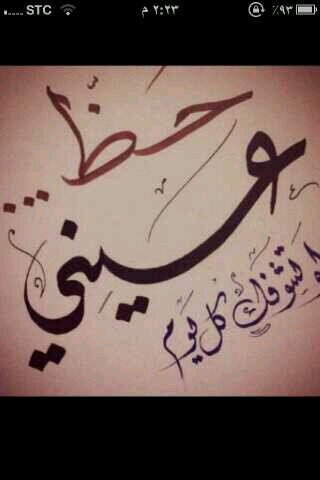 STC ٢:٢٣ م ٪٩٣
حظّ
عيني
لو تشوفك كل يوم